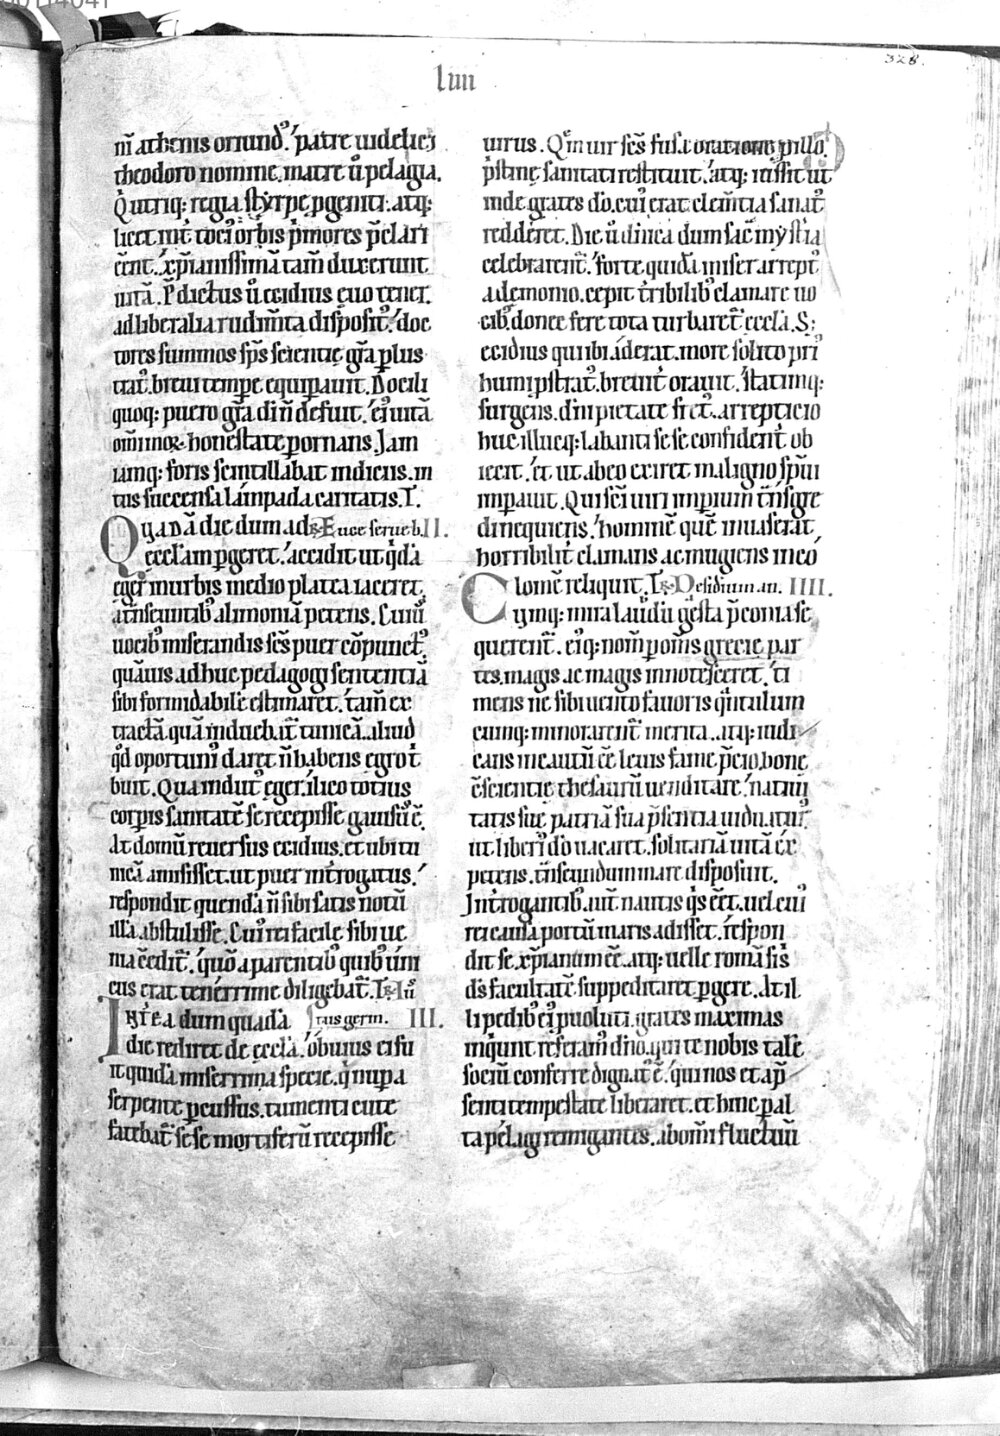 328.
liiii
nr̄ athenis oriund⁹. patre uidelicꝫ
theodoro nomine. matre ū pelagia.
Q̇ utriq; regia styrpe ꝓgeniti. atq;
licet int̄ toci⁹ orbis p̄mores p̄clari
eēnt. xp̄ianissimā tam̄ duxerunt
uitā. P̄dictus ū egidius euo tener.
ad liberalia rudim̄ta disposit⁹. doc
tores summos sp̄s scientię gr̄a plus
trat⁹. breui tempe equiꝑauit. Docili
quoq; puero gr̄a diū n̄ defuit. ei⁹ uitā
om̄imoꝝ honestate ꝑornans. Jam
iamq; foris scintillabat indiciis. in
tus succensa lampada caritatis. T.
Quadā die dum ad ℞ Euge serue b. II.
eccl̄am ꝑgeret. accidit ut q̇dā
eger in urbis medio platea iaceret.
at̄nseuntib⁹ alimoniā petens. Cuiu⁹
uocib⁹ miserandis sēs puer cōpunct⁹.
quāuis adhuc pedagogi sententiā
sibi formidabilē estimaret. tam̄ ex
tractā quā induebat̄ tunicā. aliud
q̇d oportuni⁹ daret n̄ habens egrot⁹
buit. Qua indut⁹ eger. ilico totius
corp̄is sanitatē se recepisse gauisu⁹ ē.
At domū reuersus egidius. et ubi tu
nicā amisisset. ut puer int̄rogatus.
respondit quendā n̄ sibi satis notū
illā abstulisse. Cui⁹ rei facile sibi ue
nia c̄edit̄. quō a parentib⁹ quib⁹ uni
cus erat tenerrime diligebat̄. T. ℞ Iu
Int̄ea dum quadā stus germ. III.
die rediret de eccl̄a. obuius ei fu
it quidā miserrima specie. q̇ nuꝑ a
serpente ꝑcussus. tumenti cute
fatebat̄ sese mortiferū recepisse
uirus. Qm̄ uir sēs fusa oratione ꝓ illo
p̄stine sanitati restituit. atq; iussit ut
inde grates do. cui⁹ erat clem̄tia sanat⁹
redderet. Die ū dn̄ica dum sac̄ mystīa
celebrarent̄. forte quidā miser arrept⁹
a demonio. cepit t̄ribilib⁹ clamare uo
cib⁹. donec fere tota turbaret̄ eccl̄a. S;
egidius qui ibi aderat. more solito pri⁹
humi p̄strat⁹. breuit̄ orauit. statimq;
surgens. diu⁹ pietate fret⁹. arrepticio
huc illucq; labanti sese confident̄ ob
iecit. et ut ab eo exiret maligno sp̄ui
imꝑauit. Qui sc̄i uiri imperium t̄nsg̅re
di nequiens. hominē quē inuaserat
horribilit̄ clamans ac mugiens incō
lomē reliquit. T. ℞ Desidiium an. IIII.
Cumq; mira laudū gesta p̄conia se
querent̄. ei⁹q; nom̄ ꝑ om̄s grecie par
tes. magis ac magis innotesceret. ti
mens ne sibi ueuito fauoris q̄ntulum
cumq; minorarent̄ merita. atq; iudi
cans incautū eē leuis fame p̄cio. bone
c̄scientie thesaurū uenditare. natiui
tatis sue patriā sua p̄sentia uiduatur⁹.
ut liberi⁹ do uacaret. solitariā uitā ex
petens. t̄nseundum mare disposuit.
Int̄rogantib⁹ aut̄ nautis q̇s eēt. uel cui⁹
rei causa portū maris adisset. respon
dit se xp̄ianum eē. atq; uelle romā si s̄
ds̄ facultatē suppeditaret ꝑgere. At il
li pedib⁹ ei⁹ ꝓuoluti. grates maximas
inquiunt referam⁹ dn̄o. qui te nobis talē
sociū conferre dignat⁹ ē. qui nos et a p̄
senti tempestate liberaret. et hinc ꝑ al
ta pelagi remigantes. ab om̄i fluctuū